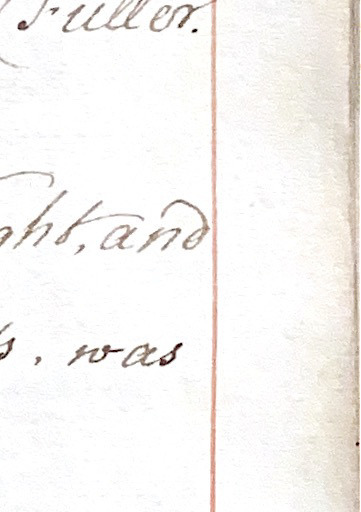 (Fuller.
ght, and
s. was